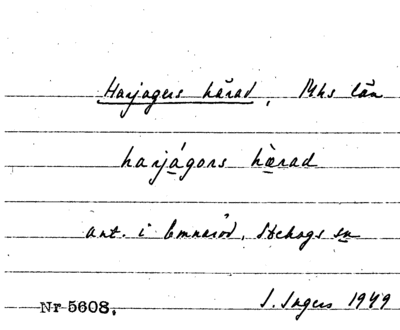 Harjagers härad, Mhs län
harjágors hærad
ant. i Emnaröd, Stehags sn
Nr 5608. I. Ingers 1949